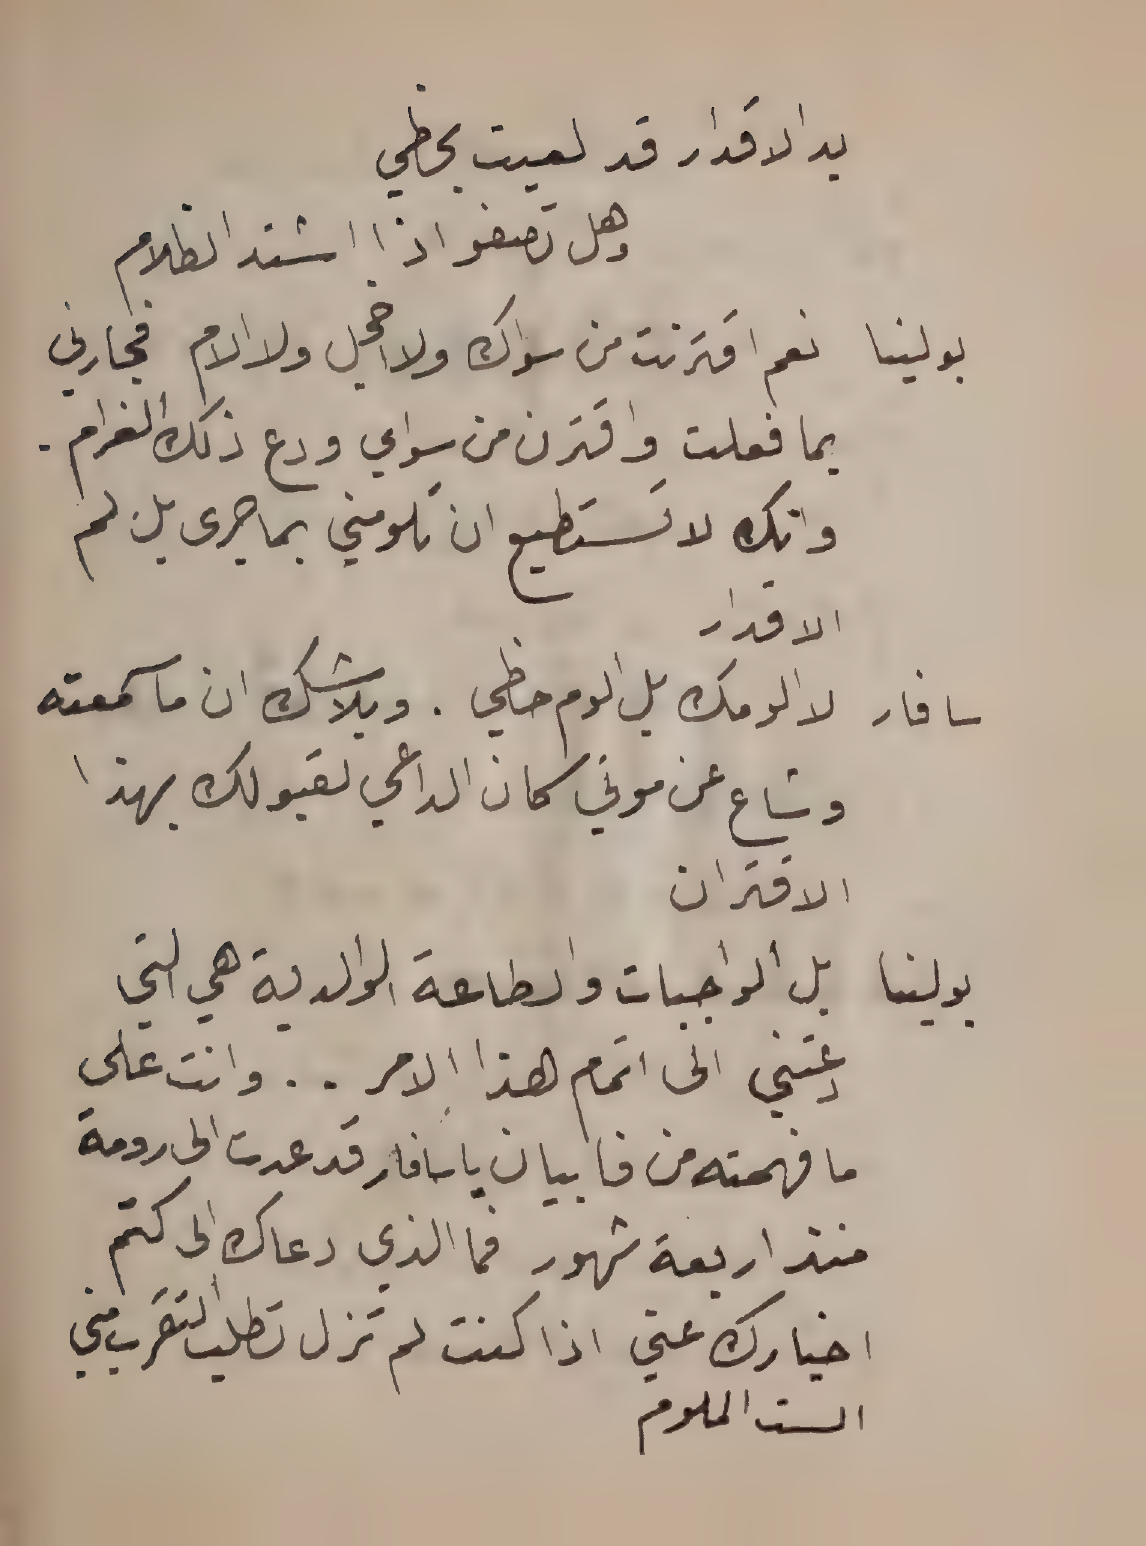 يد الاقدار قد لعبت بحظي
وهل تصفو اذا اشتد الظلام
بولينا نعم اقترنت من سواك ولا خجل ولا الام فجارني
بما فعلت واقترن من سواي ودع ذلك الغرام .
وانك لا تستطيع ان تلومني بما جرى بل لم
الاقدار
سافار لا الومك بل الوم حظي . وبلا شك ان ما سمعته
وشاع عن موتي كان الداعي لقبولك بهذا
الاقتران
بولينا بل الواجبات والطاعة الوالدية هي التي
دعتني الى اتمام هذا الامر .. وانت على
ما فهمته من فابيان يا سافار قد عدت الى رومة
منذ اربعة شهور فما الذي دعاك الى كتم
اخبارك عني اذا كنت لم تزل تطلب التقرب مني
الست الملوم